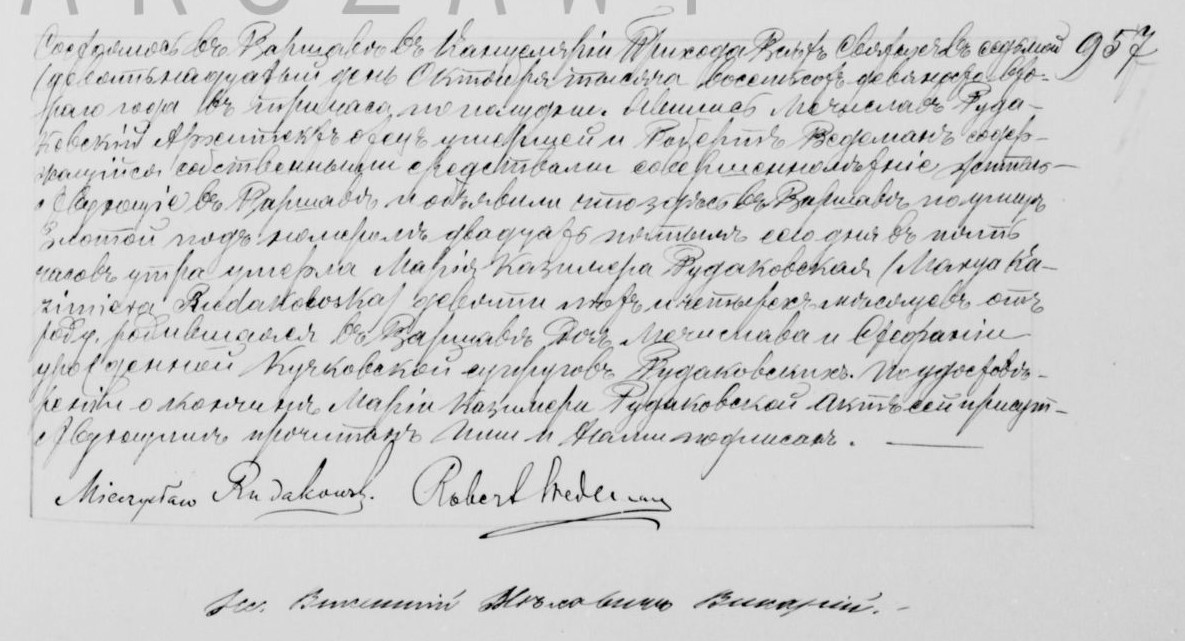 ARSZAWI
957
Состоялось въ Варшавѣ въ Канцеляріи Прихода Всѣхъ Святыхъ седьмой
(девятьнадцатый) день Октября тысяча восемьсотъ девяносто вто-
раго года въ три часа по полудни. Явились Мечиславъ Руда-
ковскій Архитектъ отецъ умершей и Робертъ Ведеманъ содер-
жащійся собственными средствами совершеннолѣтніе, житель-
ствующіе въ Варшавѣ и объявили что здѣсь въ Варшавѣ по улицѣ
Золотой подъ номеромъ двадцать пятымъ сего дня въ пять
часовъ утра умерла Марія Казимера Рудаковская /Marya Ka-
zimiera Rudakowska/ девяти лѣтъ и четырехъ мѣсяцевъ отъ
роду, родившаяся въ Варшавѣ Дочь Мечислава и Стефаніи
урожденной Кучковской супруговъ Рудаковскихъ. По удостовѣ-
реніи о кончинѣ Маріи Казимеры Рудаковской Актъ сей присут-
ствующимъ прочитанъ Ими и Нами подписанъ.
Mieczysław Rudakowski. Robert Wedeman
Викарій.